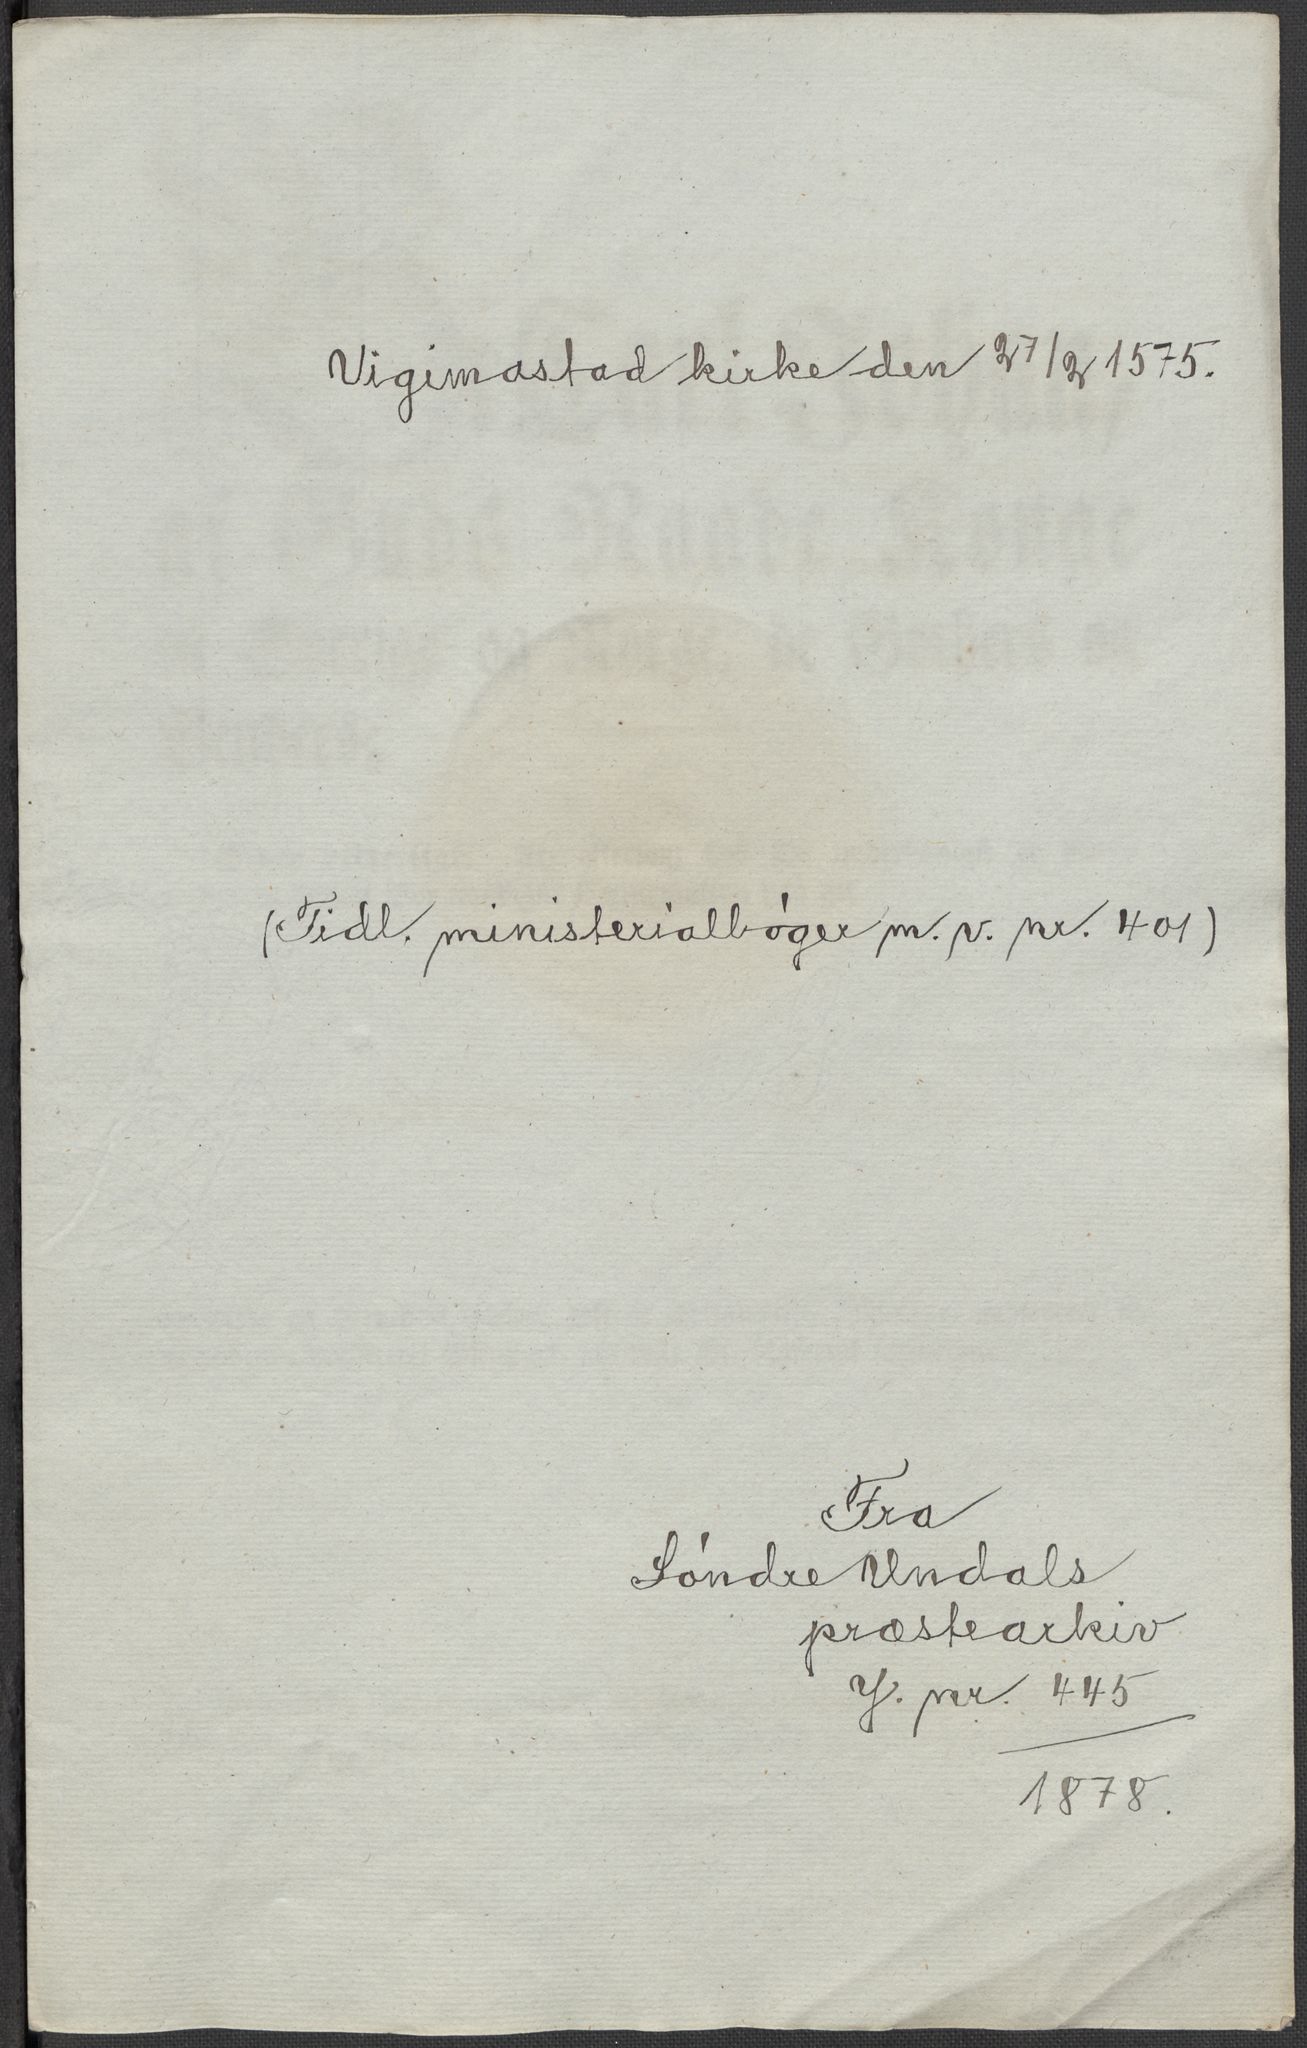 Vigimostad kirke den 27/2 1575.
(Tidl. ministerialbóger m. v. nr. 401)
Fra
Sóndre Undals
præstearkiv
J. nr. 445
1878.